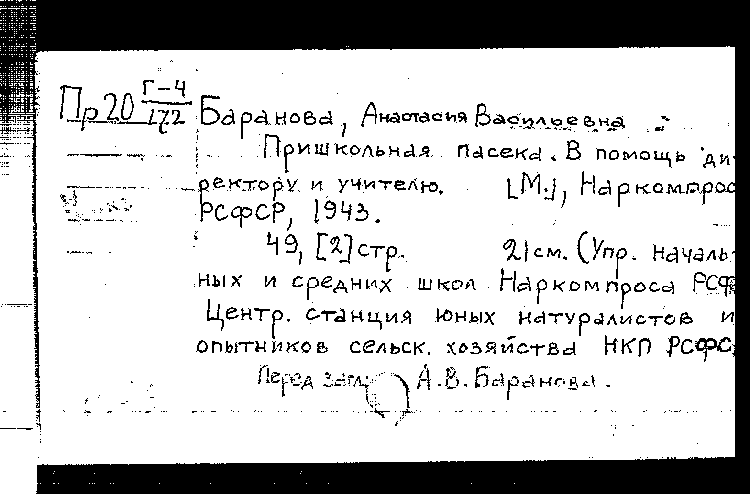 Пр20 Г-4/172 Баранова, Анастасия Васильевна
Пришкольная пасека. В помощь ди
ректору и учителю. [М.], Наркомпрос
РСФСР, 1943.
49, [2] стр. 21 см. (Упр. началь-
ных и средних школ Наркомпроса РСФ
Центр. станция юных натуралистов и
опытников сельск. хозяйства НКП РСФС
Перед загл.: А.В. Баранова.